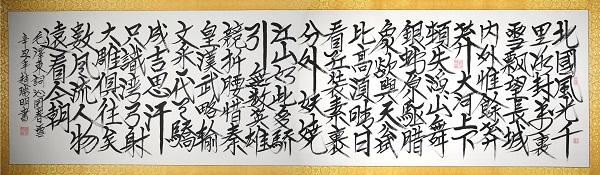 北國風光千
里冰封萬裏
雪飄望長城
内外惟餘莽
莽大河上下
頓失滔滔山舞
銀蛇原馳蠟
象欲與天公試
比高須晴日
看紅裝素裹
分外妖嬈
江山如此多嬌
引無數英雄
競折腰惜秦
皇漢武略輸
文采一代天驕
成吉思汗
只識彎弓射
大雕俱往矣
數風流人物
還看今朝
毛澤東詞沁園春雪
辛丑年趙瑞明書